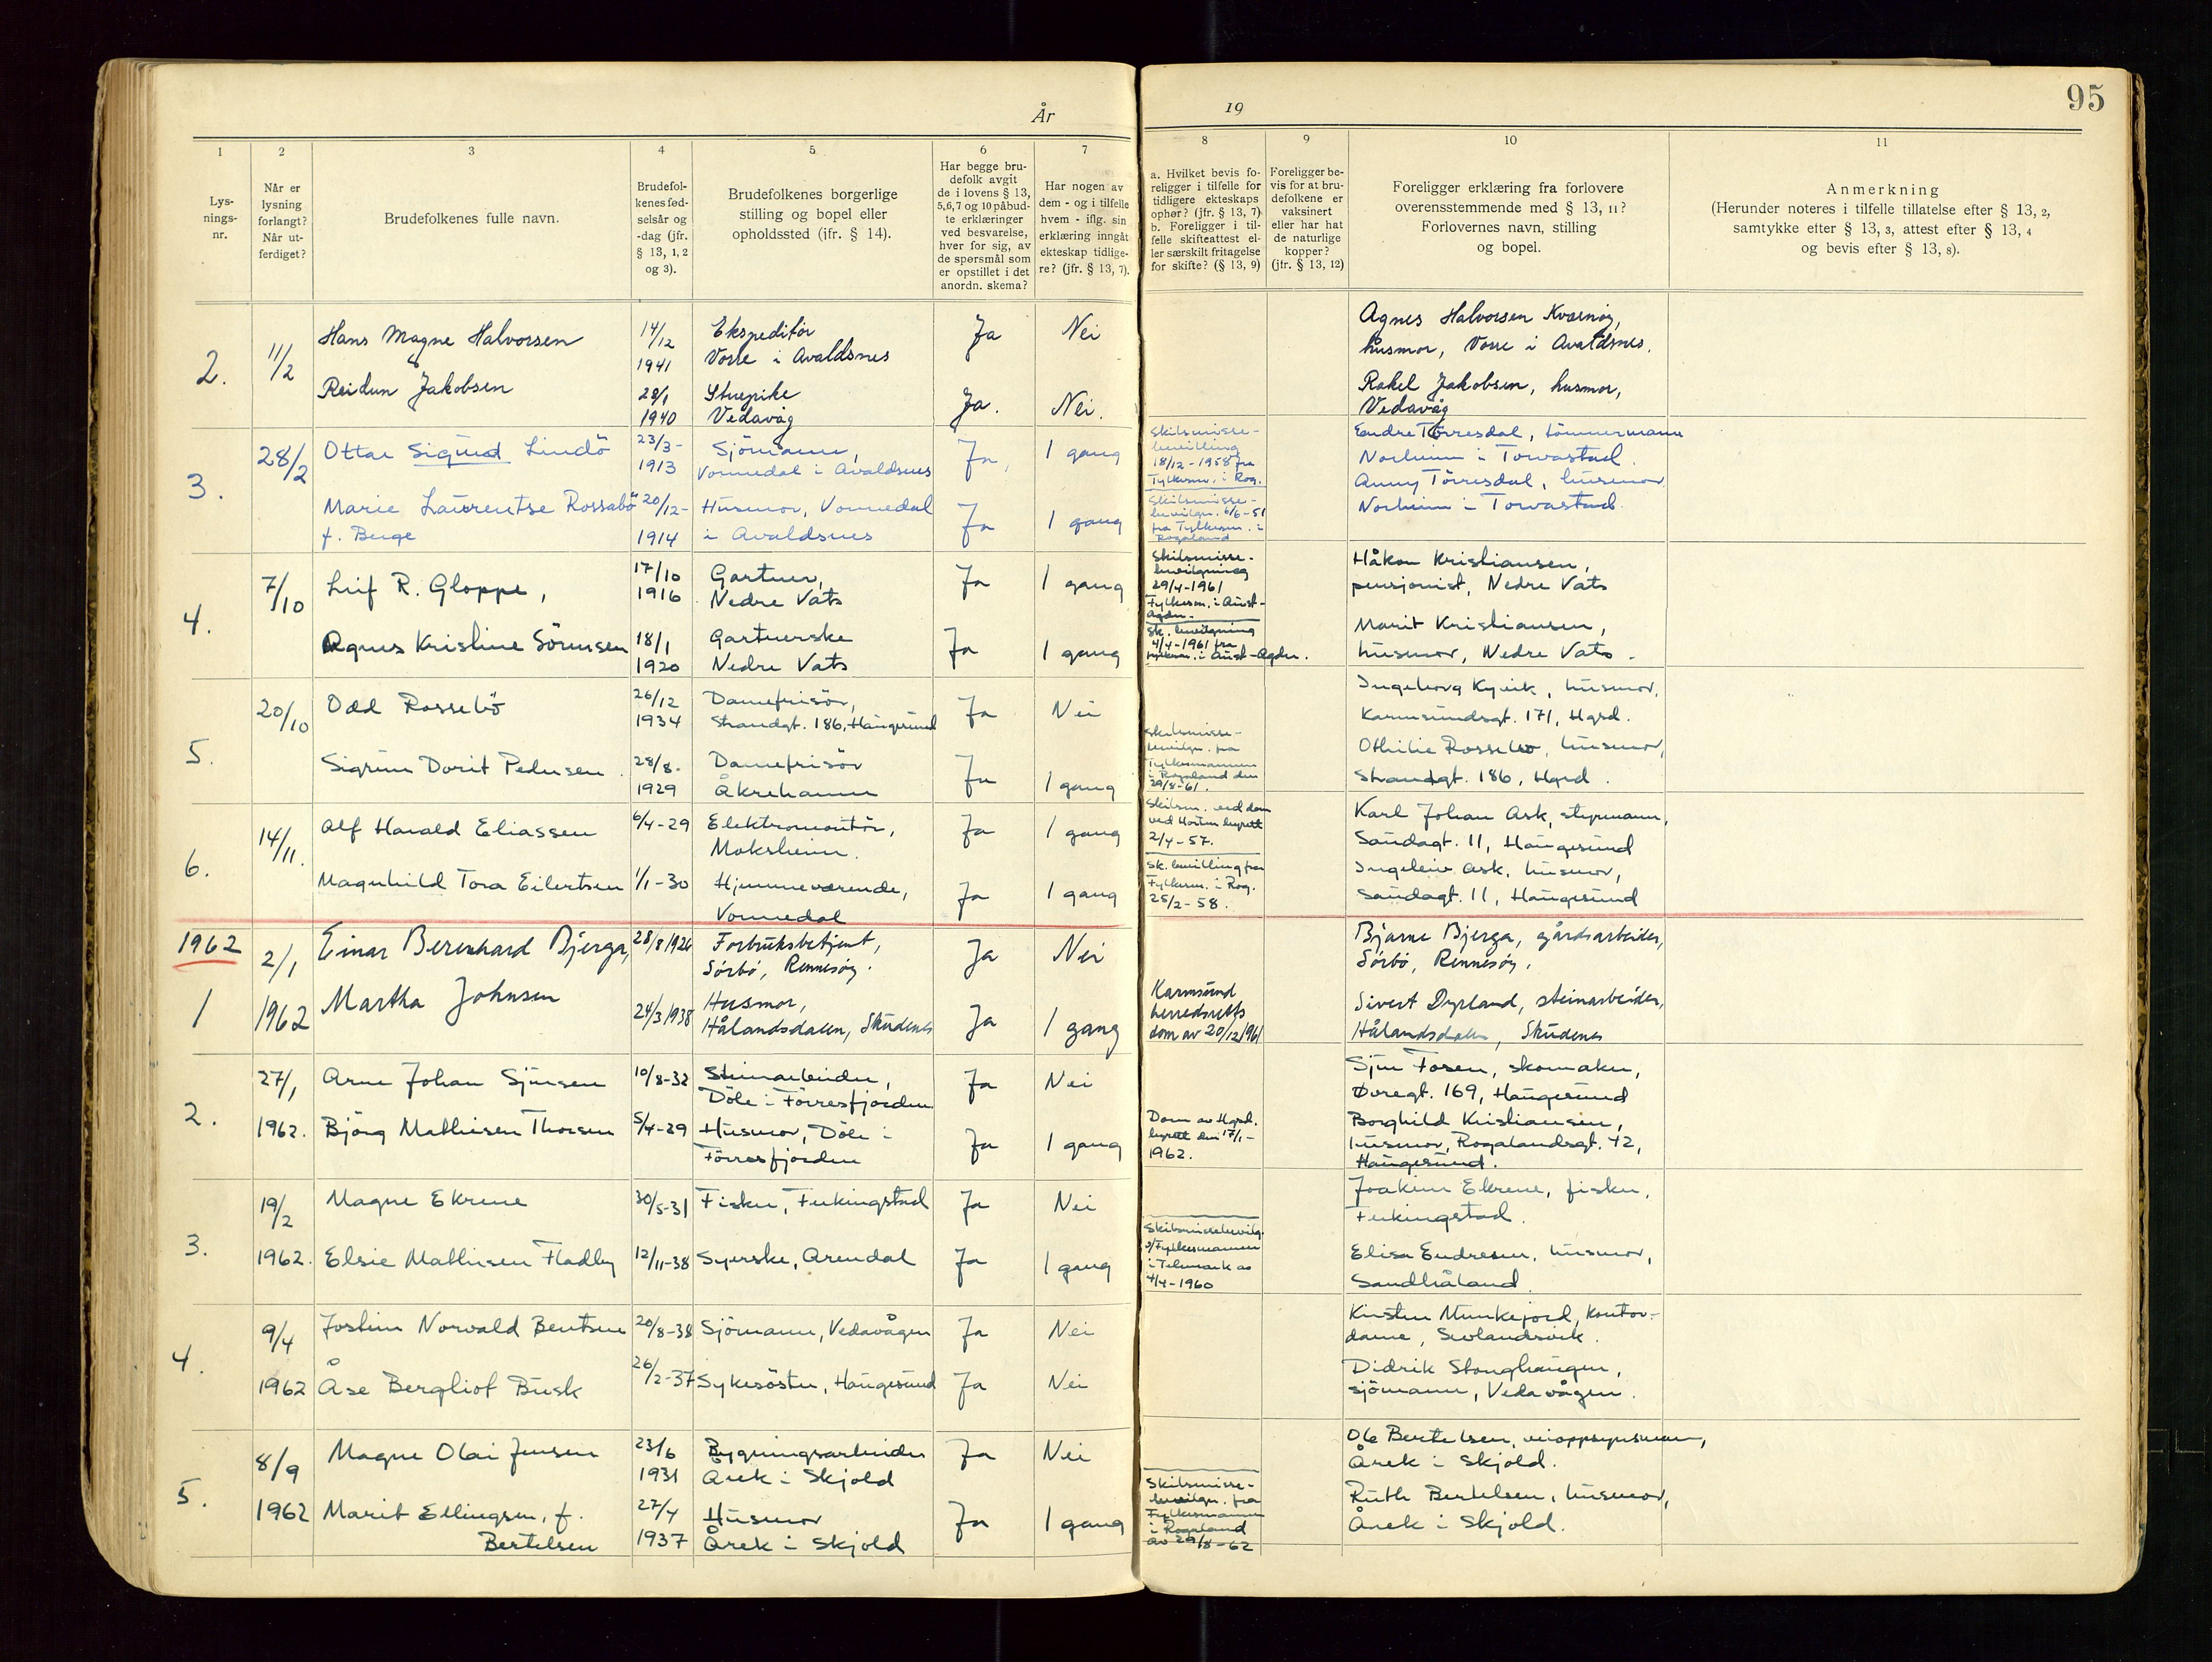 År
19
95
1
2
3
4
5
6
7
8
9
10
11
Lys-
nings-
nr.
Når er
lysning
forlangt?
Når ut-
ferdiget?
Brudefolkenes fulle navn.
Brudefol-
kenes fød-
selsår og
-dag (jfr.
§ 13, 1, 2
og 3).
Brudefolkenes borgerlige
stilling og bopel eller
opholdssted (jfr. § 14).
Har begge bru-
defolk avgit
de i lovens § 13,
5,6,7 og 10 påbud-
te erklæringer
ved besvarelse,
hver for sig, av
de spørsmål som
er opstillet i det
anordn. skema?
Har nogen av
dem - og i tilfelle
hvem - iflg. sin
erklæring inngåt
ekteskap tidlige-
re? (jfr. § 13, 7).
a. Hvilket bevis fo-
religger i tilfelle for
tidligere ekteskaps
ophør? (jfr. § 13, 7)
b. Foreligger i til-
felle skifteattest el-
ler særskilt fritagelse
for skifte? (§ 13, 9)
Foreligger be-
vis for at bru-
defolkene er
vaksinert
eller har hat
de naturlige
kopper?
(jfr. § 13, 12)
Foreligger erklæring fra forlovere
overensstemmende med § 13, 11?
Forlovernes navn, stilling
og bopel.
Anmerkning
(Herunder noteres i tilfelle tillatelse efter § 13, 2,
samtykke efter § 13, 3, attest efter § 13, 4
og bevis efter § 13, 8).
2.
11/2
Hans Magne Halvorsen
14/12
1941
Ekspeditør
Vorre i Avaldsnes
Ja
Nei
Agnes Halvorsen Kvernøy,
husmor, Vorre i Avaldsnes.
Reidun Jakobsen
28/1
1940
Stuepike
Vedavåg
Ja.
Nei.
Rakel Jakobsen, husmor,
Vedavåg
3.
28/2
Ottar Sigurd Lindö
23/3-
1913
Sjömann,
Vormedal i Avaldsnes
Ja,
1 gang
Skilsmisse-
bevilling
18/12-1958 fra
Fylkesm. i Rog.
Endre Törresdal, tömmermann
Norheim i Torvastad.
Marie Laurentse Rossabö
f. Berge
20/12-
1914
Husmor, Vormedal
i Avaldsnes
Ja
1 gang
Skilsmisse-
bevilgn. 6/6-51
fra Fylkesm. i
Rogaland
Anny Törresdal, husmor
Norheim i Torvastad.
4.
7/10
Leif R. Gloppe,
17/10
1916
Gartner,
Nedre Vats
Ja
1 gang
Skilsmisse-
bevilgning
29/4-1961
Fylkesm. i Aust-
Agder.
Håkon Kristiansen,
pensjonist, Nedre Vats
Agnes Kristine Sörensen
18/1
1920
Gartnerske
Nedre Vats
Ja
1 gang
Sk. bevilgning
4/4-1961 fra
Fylkesm. i Aust-Agder.
Marit Kristiansen,
husmor, Nedre Vats.
5.
20/10
Odd Rossebö
26/12
1934
Damefrisör,
Strandgt. 186, Haugesund
Ja
Nei
Ingeborg Kyvik, husmor,
Karmsundsgt. 171, Hgsd.
Sigrun Dorit Pedersen.
28/8.
1929
Damefrisör
Åkrehamn
Ja
1 gang
Skilsmisse-
bevilgn. fra
Fylkesmannen
i Rogaland den
29/8-61.
Othilie Rossebö, husmor,
Strandgt. 186, Hgsd.
6.
14/11.
Alf Harald Eliassen
6/4-29
Elektromontör,
Moksheim.
Ja
1 gang
Skilsm. ved dom
ved Horten byrett
2/4-57.
Karl Johan Ask, styrmann,
Saudagt. 11, Haugesund
Magnhild Tora Eilertsen
1/1-30
Hjemmeværende,
Vormedal
Ja
1 gang
Sk. bevilling fra
Fylkesm. i Rog.
25/2-58.
Ingeleiv Ask, husmor,
Saudagt. 11, Haugesund
1962
1
2/1
1962
Einar Berenhard Bjerga,
28/8 1926
Forbruksbetjent,
Sörbö, Rennesöy.
Ja
Nei
Bjarne Bjerga, gårdsarbeider,
Sörbö, Rennesöy.
Martha Johnsen
24/3 1938
Husmor,
Hålandsdalen, Skudenes
Ja
1 gang
Karmsund
herredsretts
dom av 20/12 1961
Sivert Dyrland, steinarbeider,
Hålandsdalen, Skudenes
2.
27/1
1962.
Arne Johan Sjursen
10/8-32
Steinarbeider,
Döle i Förresfjorden
Ja
Nei
Sjur Fosen, skomaker,
Øvregt. 169, Haugesund
Björg Mathisen Thorsen
5/4-29
Husmor, Döle i
Förresfjorden
Ja
1 gang
Dom av Hgsd.
byrett den 17/1-
1962.
Borghild Kristiansen,
husmor, Rogalandsgt. 42,
Haugesund.
3.
19/2
1962.
Magne Ekrene
30/5-31
Fisker, Ferkingstad
Ja
Nei
Joakim Ekrene, fisker,
Ferkingstad.
Elsie Mathisen Fladby
12/11-38
Syerske, Arendal
Ja
1 gang
Skilsmissebevilg.
Fylkesmannen
i Telemark av
4/4-1960
Elisa Endresen, husmor,
Sandhåland.
4.
9/4
1962
Jostein Norvald Bentsen
20/8-38
Sjömann, Vedavågen
Ja
Nei
Kirsten Munkejord, kontor-
dame, Sevlandsvik.
Åse Bergliot Busk
26/2-37
Sykesöster, Haugesund
Ja
Nei
Didrik Stonghaugen,
sjömann, Vedavågen.
5.
8/9
1962
Magne Olai Jensen
23/6
1931
Bygningsarbeider
Årek i Skjold
Ja
Nei
Ole Bertelsen, veioppsynsmann,
Årek i Skjold.
Marit Ellingsen, f.
Bertelsen
27/4
1937
Husmor
Årek i Skjold
Ja
1 gang
Skilsmisse-
bevilgn. fra
Fylkesmannen
i Rogaland
av 29/8-62
Ruth Bertelsen, husmor,
Årek i Skjold.